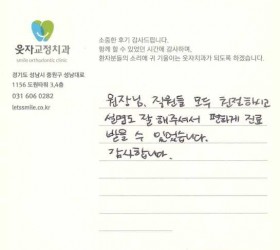 웃자교정치과
smile orthodontic clinic
경기도 성남시 중원구 성남대로
1156 도원타워 3,4층
031 606 0282
letssmile.co.kr
소중한 후기 감사드립니다.
함께 할 수 있었던 시간에 감사하며,
환자분들의 소리에 귀 기울이는 웃자치과가 되도록 하겠습니다.
원장님, 직원들 모두 친절하시고
설명도 잘 해주셔서 편하게 진료
받을 수 있었습니다.
감사합니다.